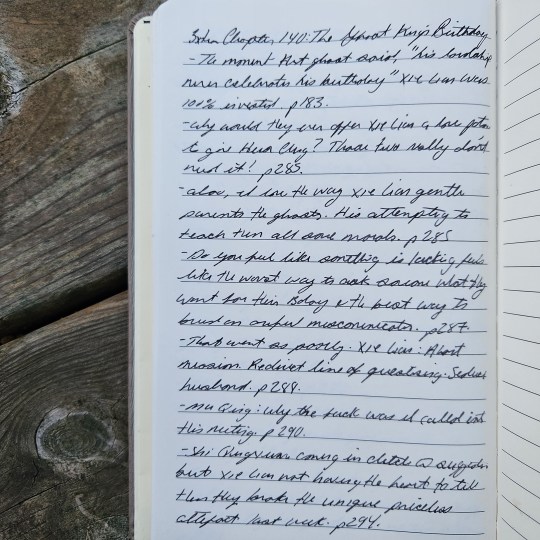 Extra Chapter, 140: The Ghost King's Birthday
- The moment that ghost said, "his lordship
never celebrates his birthday" Xie Lian was
100% invested. p183.
- why would they even offer Xie Lian a love potion
to give Hua Cheng? Those two really don't
need it! p285.
- also, I love the way Xie Lian gentle
parents the ghosts. His attempting to
teach them all some morals. p285
- Do you feel like something is lacking feels
like the worst way to ask someone what they
want for their Bday & the best way to
miscommunication. p287.
- That went as poorly. Xie Lian: Abort
mission. Redirect line of questioning. Seduce
husband. p288.
- Mu Qing: why the fuck was I called into
this meeting. p290.
- Shi Qingxuan coming in clutch w suggestion
but Xie Lian not having the heart to tell
them they broke the unique priceless
artefact last week. p294.